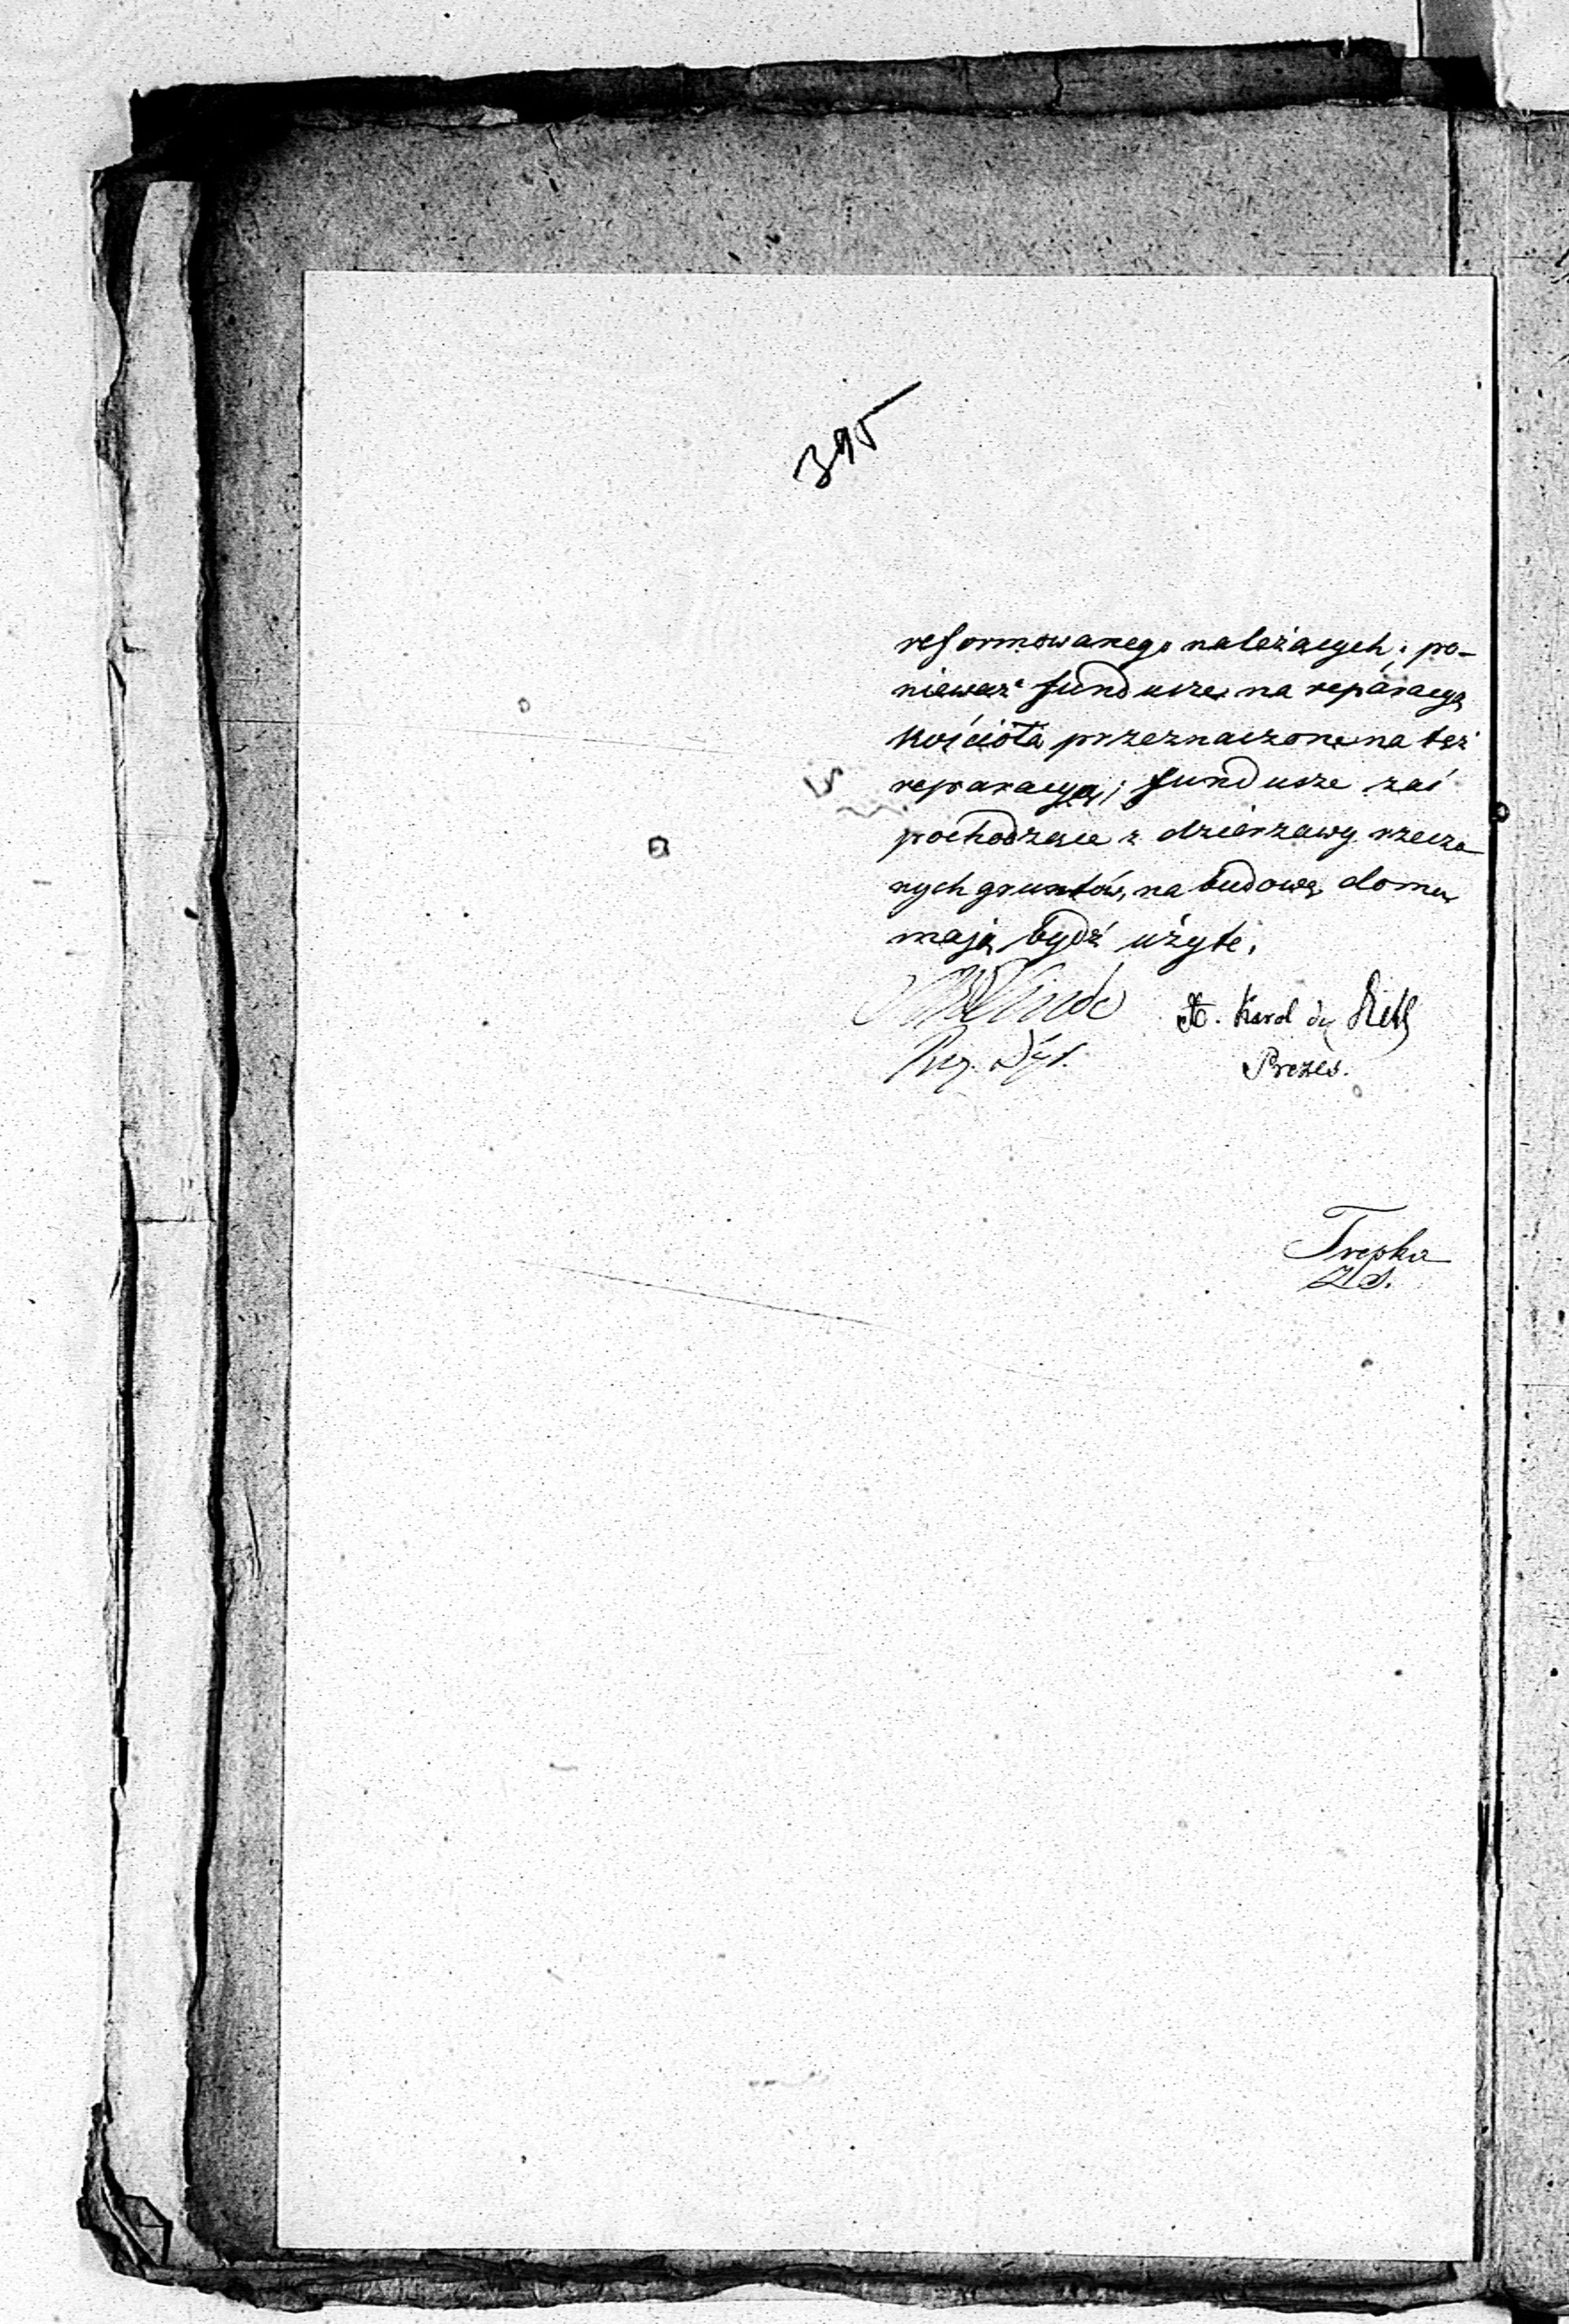 395
reformowanego należących; po-
nieważ fundusze na reparacyą
kościoła przeznaczone na też
reparacyą; fundusze zaś
pochodzące z dzierzawy rzeczo
nych gruntów, na budowę domu
mają bydź użyte.
Linde Karol
Prez. Prezes.
Trepka
Z S.